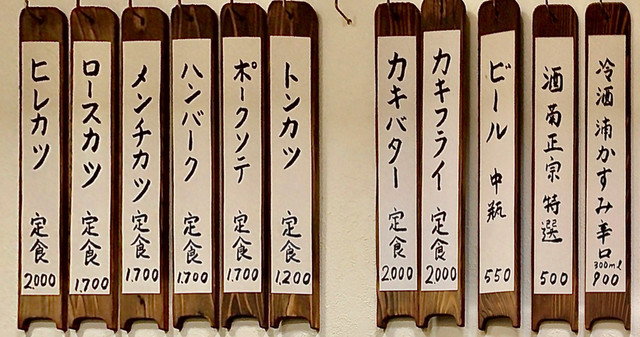 冷酒 浦かすみ 辛口 300ml 900
酒 菊正宗 特選 500
ビール 中瓶 550
カキフライ 定食 2,000
カキバター 定食 2,000
トンカツ 定食 1,200
ポークソテ 定食 1,700
ハンバーク 定食 1,700
メンチカツ 定食 1,700
ロースカツ 定食 1,700
ヒレカツ 定食 2,000